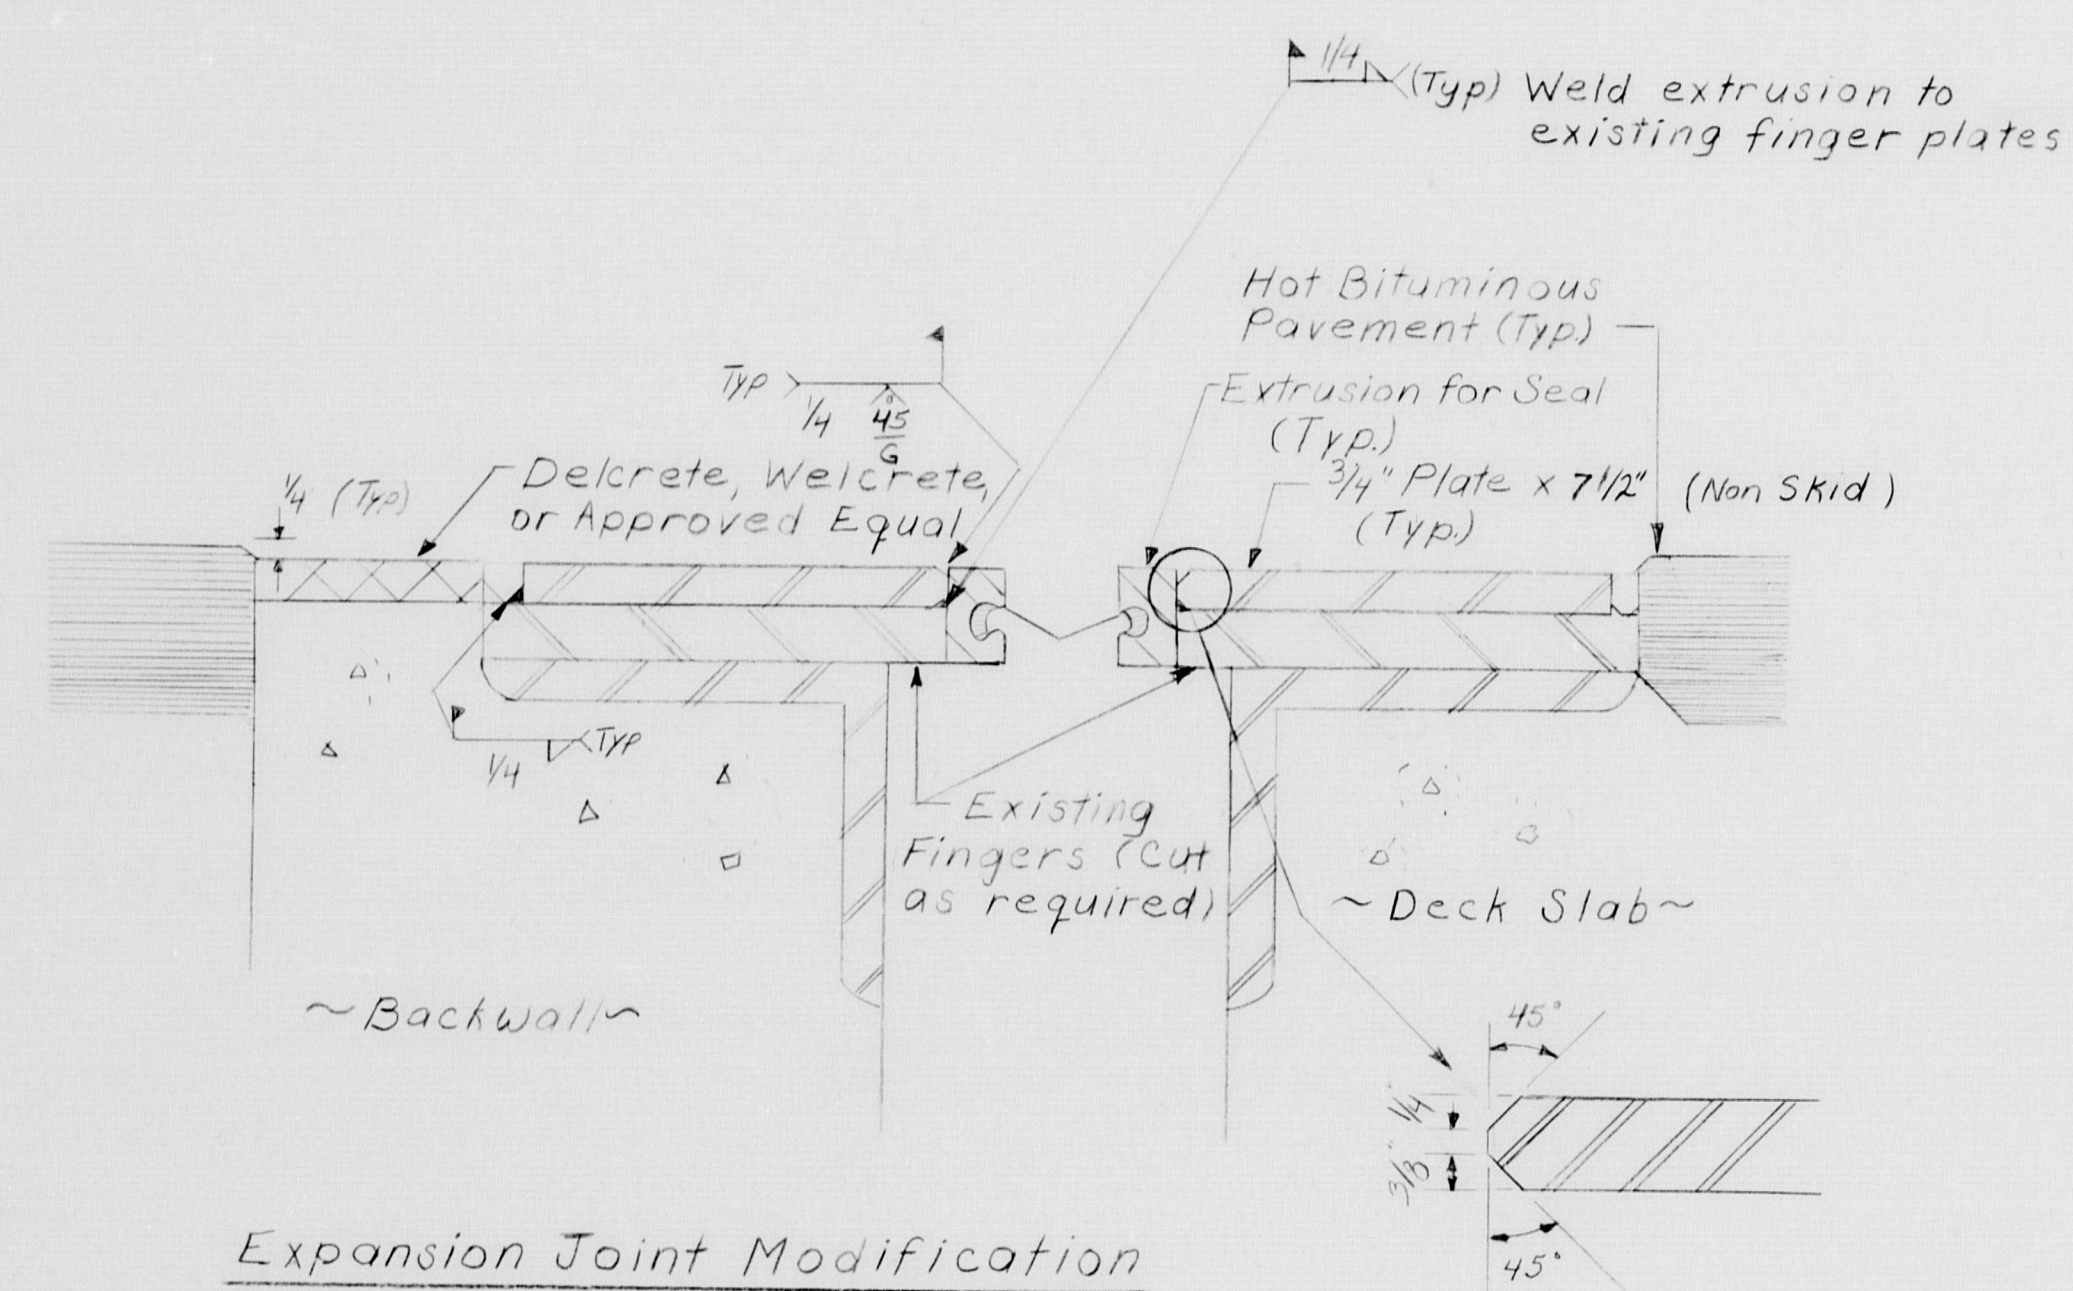 1/4 (Typ) Weld extrusion to
existing finger plates
Hot Bituminous
Pavement (Typ.)
Typ 1/4 45°
G
Extrusion for Seal
(Typ.)
3/4" Plate x 7 1/2" (Non Skid)
(Typ.)
1/4 (Typ)
Delcrete, Welcrete,
or Approved Equal
1/4 Typ
Existing
Fingers (Cut
as required)
~Deck Slab~
~Backwall~
45°
1/4"
3/8"
45°
Expansion Joint Modification